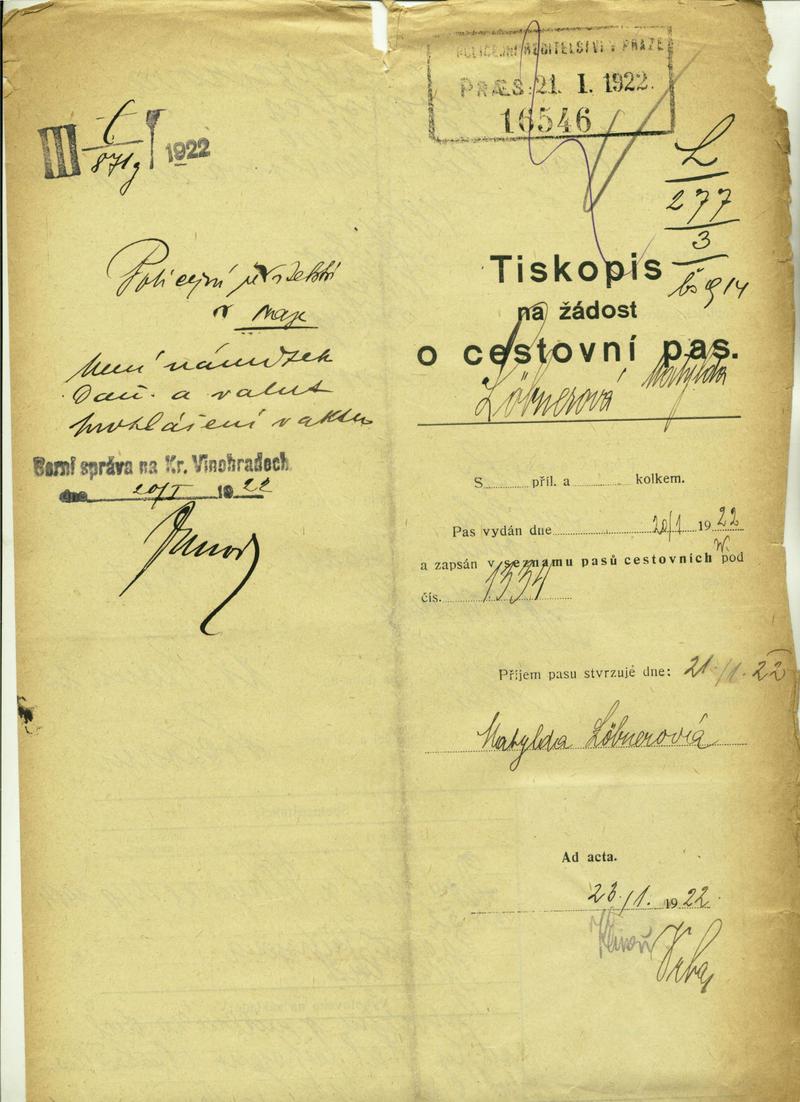 POLICEJNÍ ŘEDITELSTVÍ V PRAZE
PRÆS. 21. I. 1922.
16546
III 1922
871g
L
277
3
Policejní
v
není námitek
daň. a valut.
Berní správa na Kr. Vinohradech
dne 20/I 1922
Tiskopis
na žádost
o cestovní pas.
Löbnerová Matylda
S příl. a kolkem.
Pas vydán dne 20/1 1922
a zapsán v seznamu pasů cestovních pod
čís. 1334
Příjem pasu stvrzuje dne: 21./1. 22
Matylda Löbnerová
Ad acta.
23./1. 1922